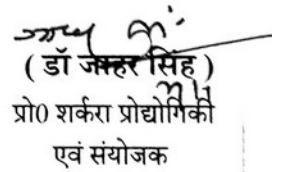 ( डॉ जाहर सिंह )
प्रो0 शर्करा प्रोद्योगिकी
एवं संयोजक